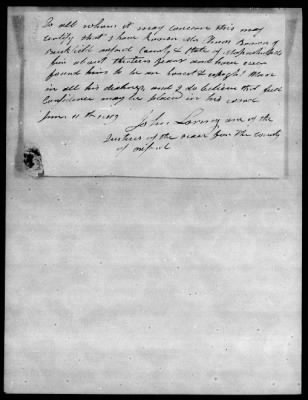 To all whom it may concern this may
certify that I have known Mr Thomas Bowen of
Buckfield in the County & State of Massachusetts
him about thirteen years and have ever
found him to be an honest & upright Man
in all his dealings, and I do believe that full
Confidence may be placed in his word
June 11th 1819
John Loring one of the
Justices of the peace for the county
of oxford